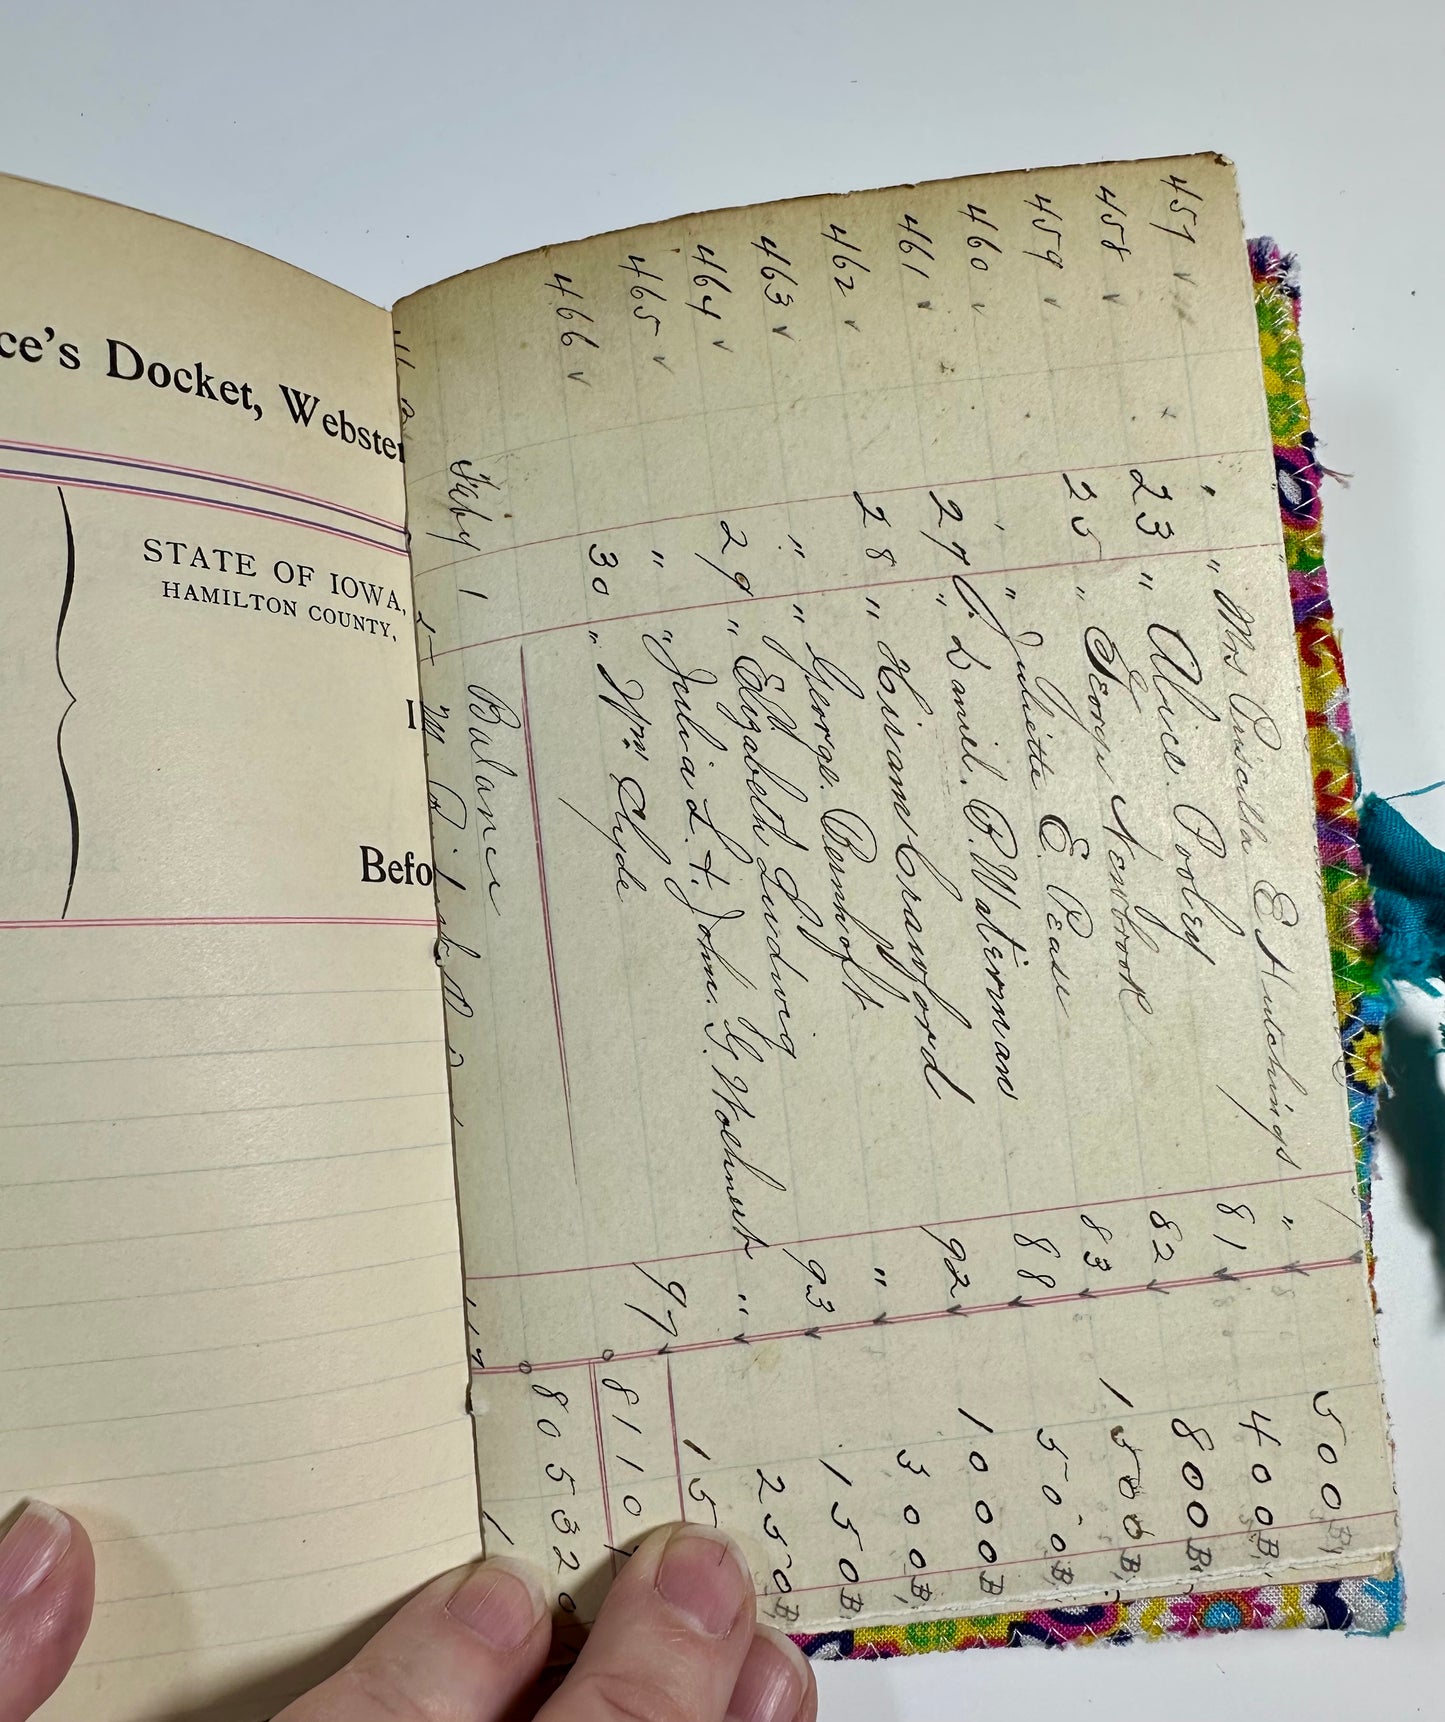 ce's Docket, Webster
STATE OF IOWA,
HAMILTON COUNTY,
Befo
457 " " Mrs Priscilla E Hutchings " 500 B
458 23 " Alice Pooley 81 400 B
459 25 " George Newbrook 82 800 B
460 " " Juliette E. Pease 83 1500 B
461 27 " Daniel. P. Waterman 88 500 B
462 28 " Hirame Crawford 92 1000 B
463 " " George. Bernhoft " 300 B
464 29 " Elizabeth Ludwig 93 150 B
465 " " Julia L. + John. G. Woehnert " 250 B
466 30 " Wm. Clyde 97 15
8110
Feby 1 Balance 80532